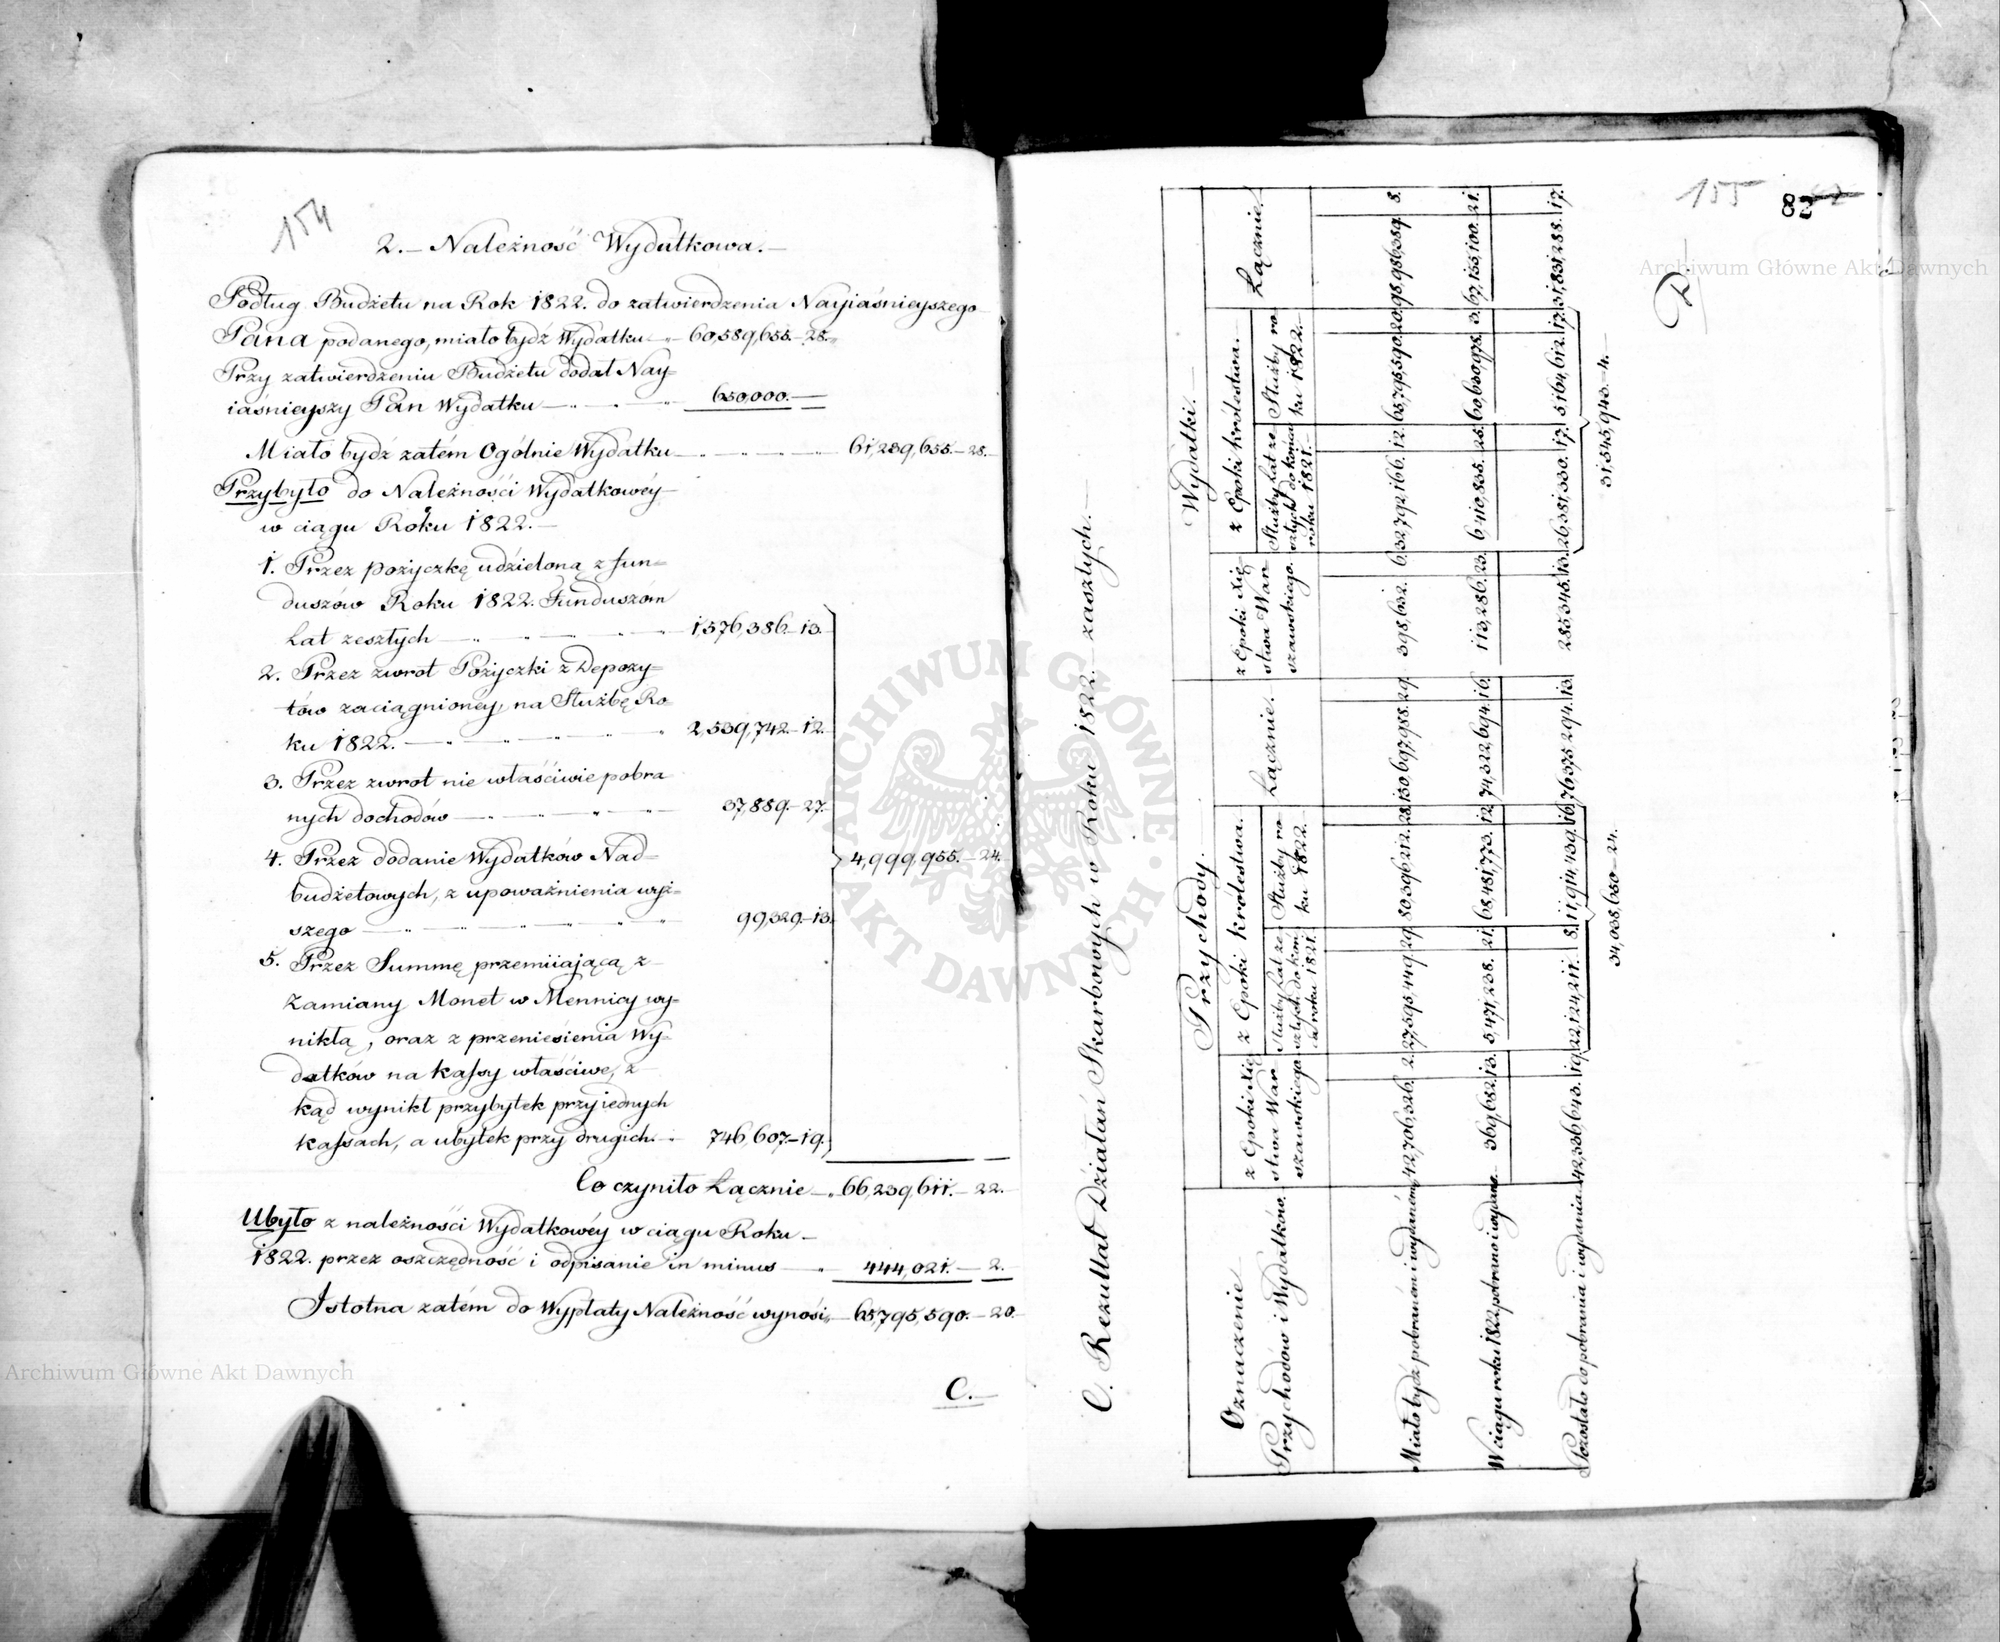 154
2. — Należność Wydatkowa. —
Podług Budżetu na Rok 1822. do zatwierdzenia Nayiaśnieyszego
Pana podanego, miało bydź Wydatku 60,589,655.— 28.
Przy zatwierdzeniu Budżetu dodał Nay=
iaśnieyszy Pan Wydatku — 650,000.—
Miało bydź zatém Ogólnie Wydatku — 61,239,655.— 28.
Przybyło do Należności Wydatkowéy —
w ciągu Roku 1822. —
1. Przez pożyczkę udzieloną z fun=
duszów Roku 1822. Funduszom
Lat zeszłych — 1,576,386.— 13.
2. Przez zwrot Pożyczki z Depozy=
tów zaciągnioney, na Służbę Ro=
ku 1822. — 2,539,742.— 12.
3. Przez zwrot nie właściwie pobra
nych dochodów — 37,889.— 27.
4. Przez dodanie Wydatków Nad=
4,999,955.— 24.
budżetowych, z upoważnienia wyż=
szego — 99,329.— 13.
5. Przez Summę przemiiającą z
Zamiany Monet w Mennicy wy=
nikłą, oraz z przeniesienia Wy=
datków na Kassy właściwe, z
kąd wynikł przybytek przy iednych
Kassach, a ubytek przy drugich. 746,607.— 19.
Co czyniło Łącznie — 66,239,611.— 22.
Ubyło z należności Wydatkowéy w ciągu Roku —
1822. przez oszczędność i odpisanie in minus — 444,021.— 2.
Istotna zatém do Wypłaty Należność wynosi — 65,795,590.— 20.
C. —
155
82
D
C. Rezultat Działań Skarbowych w Roku 1822. — zaszłych. —
Oznaczenie
Przychodów i Wydatków.
Przychody.
z Epoki Xię
stwa War
szawskiego
z Epoki Królestwa.
Służby Lat ze
szłych do koń
ca roku 1821.
Służby ro
ku 1822.
Łącznie.
Wydatki. —
z Epoki Xię
stwa War
szawskiego.
z Epoki Królestwa. —
Służby Lat ze
szłych do końca
roku 1821. —
Służby ro
ku 1822. —
Łącznie.
Miało bydź pobraném i wydaném 42,706,326. 2. 27,595,449. 29. 80,396,212. 28. 150,697,988. 29. 398,632. 6. 32,792,166. 12. 65,795,590. 20. 98,986,389. 8.
W ciągu roku 1822. pobrano i wydano 369,682. 13. 5,471,238. 21. 68,481,773. 12. 74,322,694. 16. 113,286. 23. 6,410,835. 25. 60,630,978. 3. 67,155,100. 21.
Pozostało do pobrania i wydania 42,336,643. 19. 22,124,211. 8. 11,914,439. 16. 76,375,294. 13. 285,345. 13. 26,381,330. 17. 5,164,612. 17. 31,831,288. 17.
34,038,650.— 24. 31,545,943.— 4.
Archiwum Główne Akt Dawnych
Archiwum Główne Akt Dawnych
ARCHIWUM GŁÓWNE AKT DAWNYCH